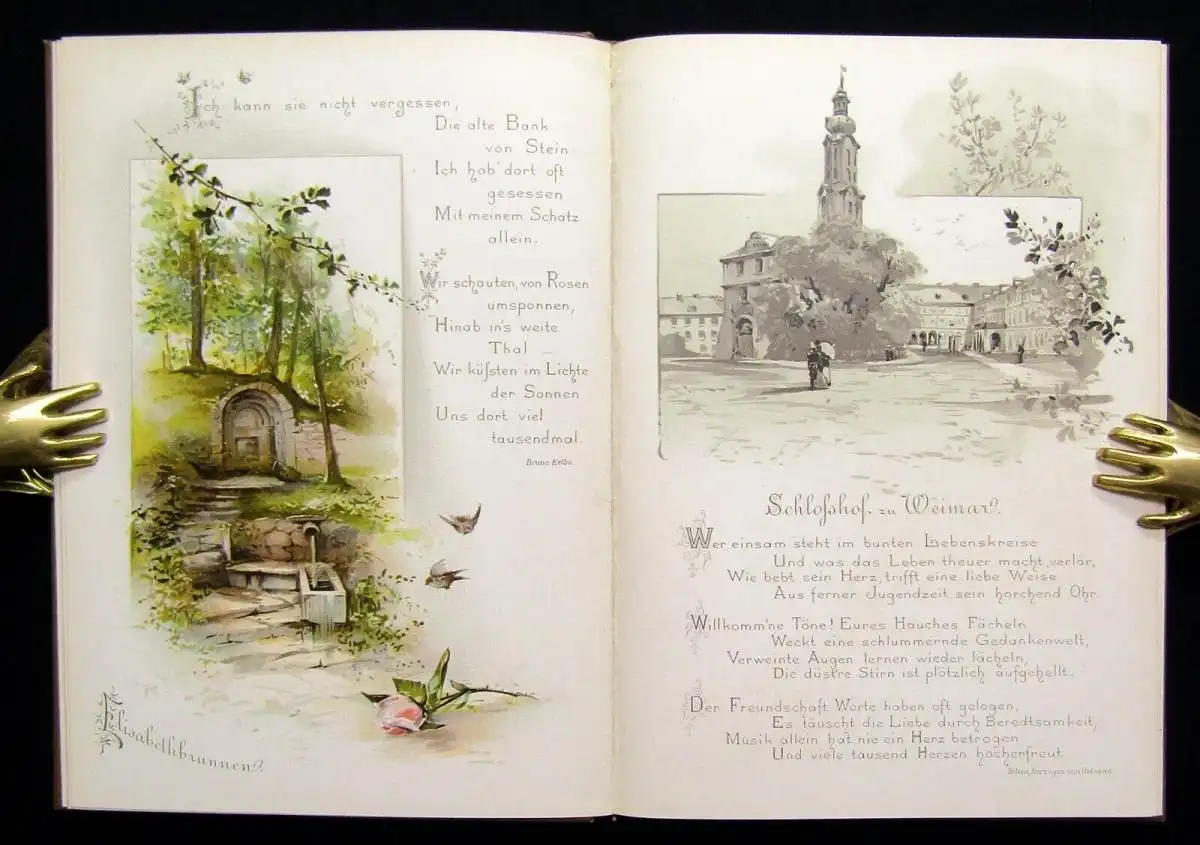 Ich kann sie nicht vergessen,
Die alte Bank
von Stein
Ich hab' dort oft
gesessen
Mit meinem Schatz
allein.
Wir schauten, von Rosen
umsponnen,
Hinab in's weite
Thal —
Wir küßten im Lichte
der Sonnen
Uns dort viel
tausendmal.
Bruno Erlba
Elisabethbrunnen.
Schloßhof zu Weimar.
Wer einsam steht im bunten Lebenskreise
Und was das Leben theuer macht, verlor,
Wie bebt sein Herz, trifft eine liebe Weise
Aus ferner Jugendzeit sein horchend Ohr.
Willkomm'ne Töne! Eures Hauches Fächeln
Weckt eine schlummernde Gedankenwelt,
Verweinte Augen lernen wieder lächeln,
Die düst're Stirn ist plötzlich aufgehellt.
Der Freundschaft Worte haben oft gelogen,
Es täuscht die Liebe durch Beredtsamkeit,
Musik allein hat nie ein Herz betrogen
Und viele tausend Herzen hocherfreut
Helene, Herzogin von Orleans